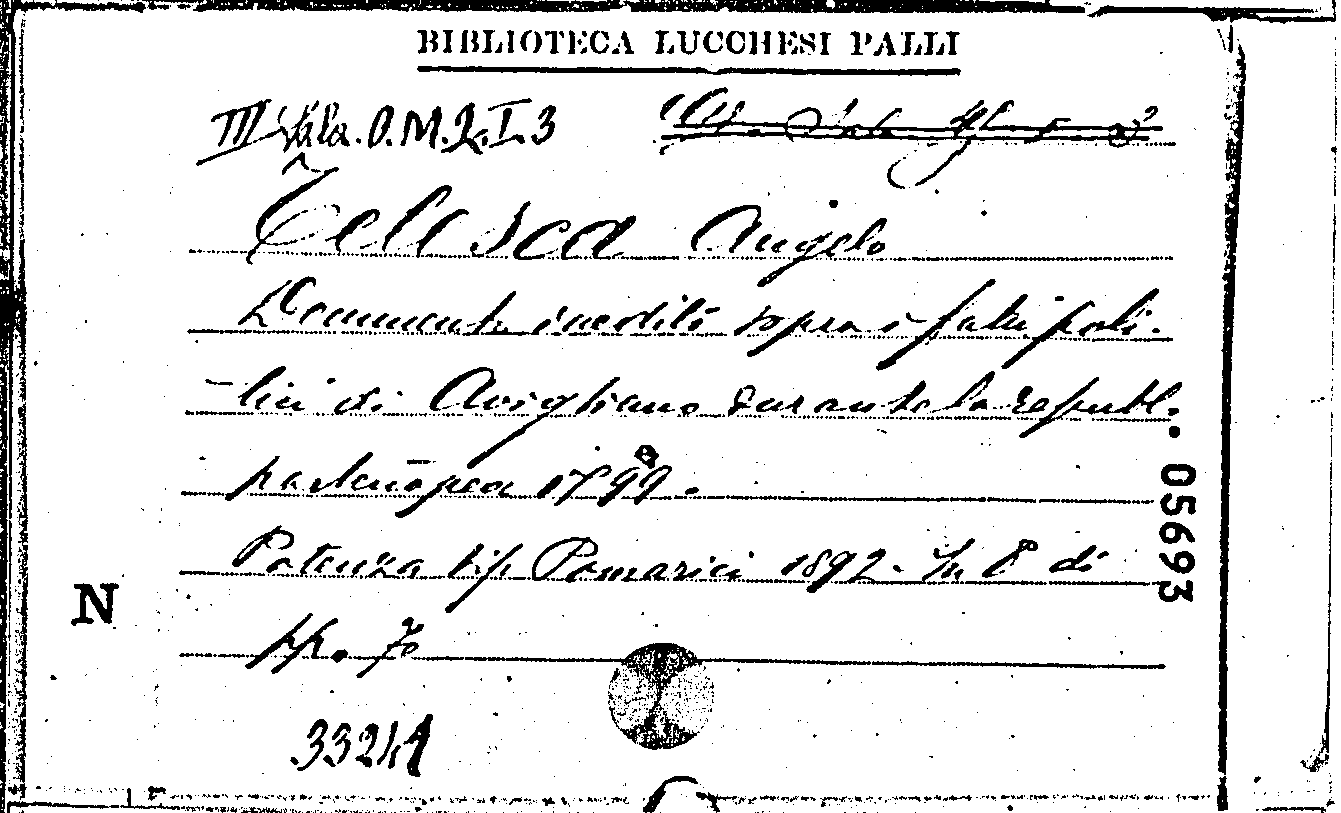 BIBLIOTECA LUCCHESI PALLI
III Sala. O.M.2.I.3
Telesca Angelo
Documenti inediti sopra i fatti poli-
-tici di Avigliano durante la republ.
partenopea 1799.
Potenza tip. Pomarici 1892. In 8° di
pp. 70
N
05693
33241